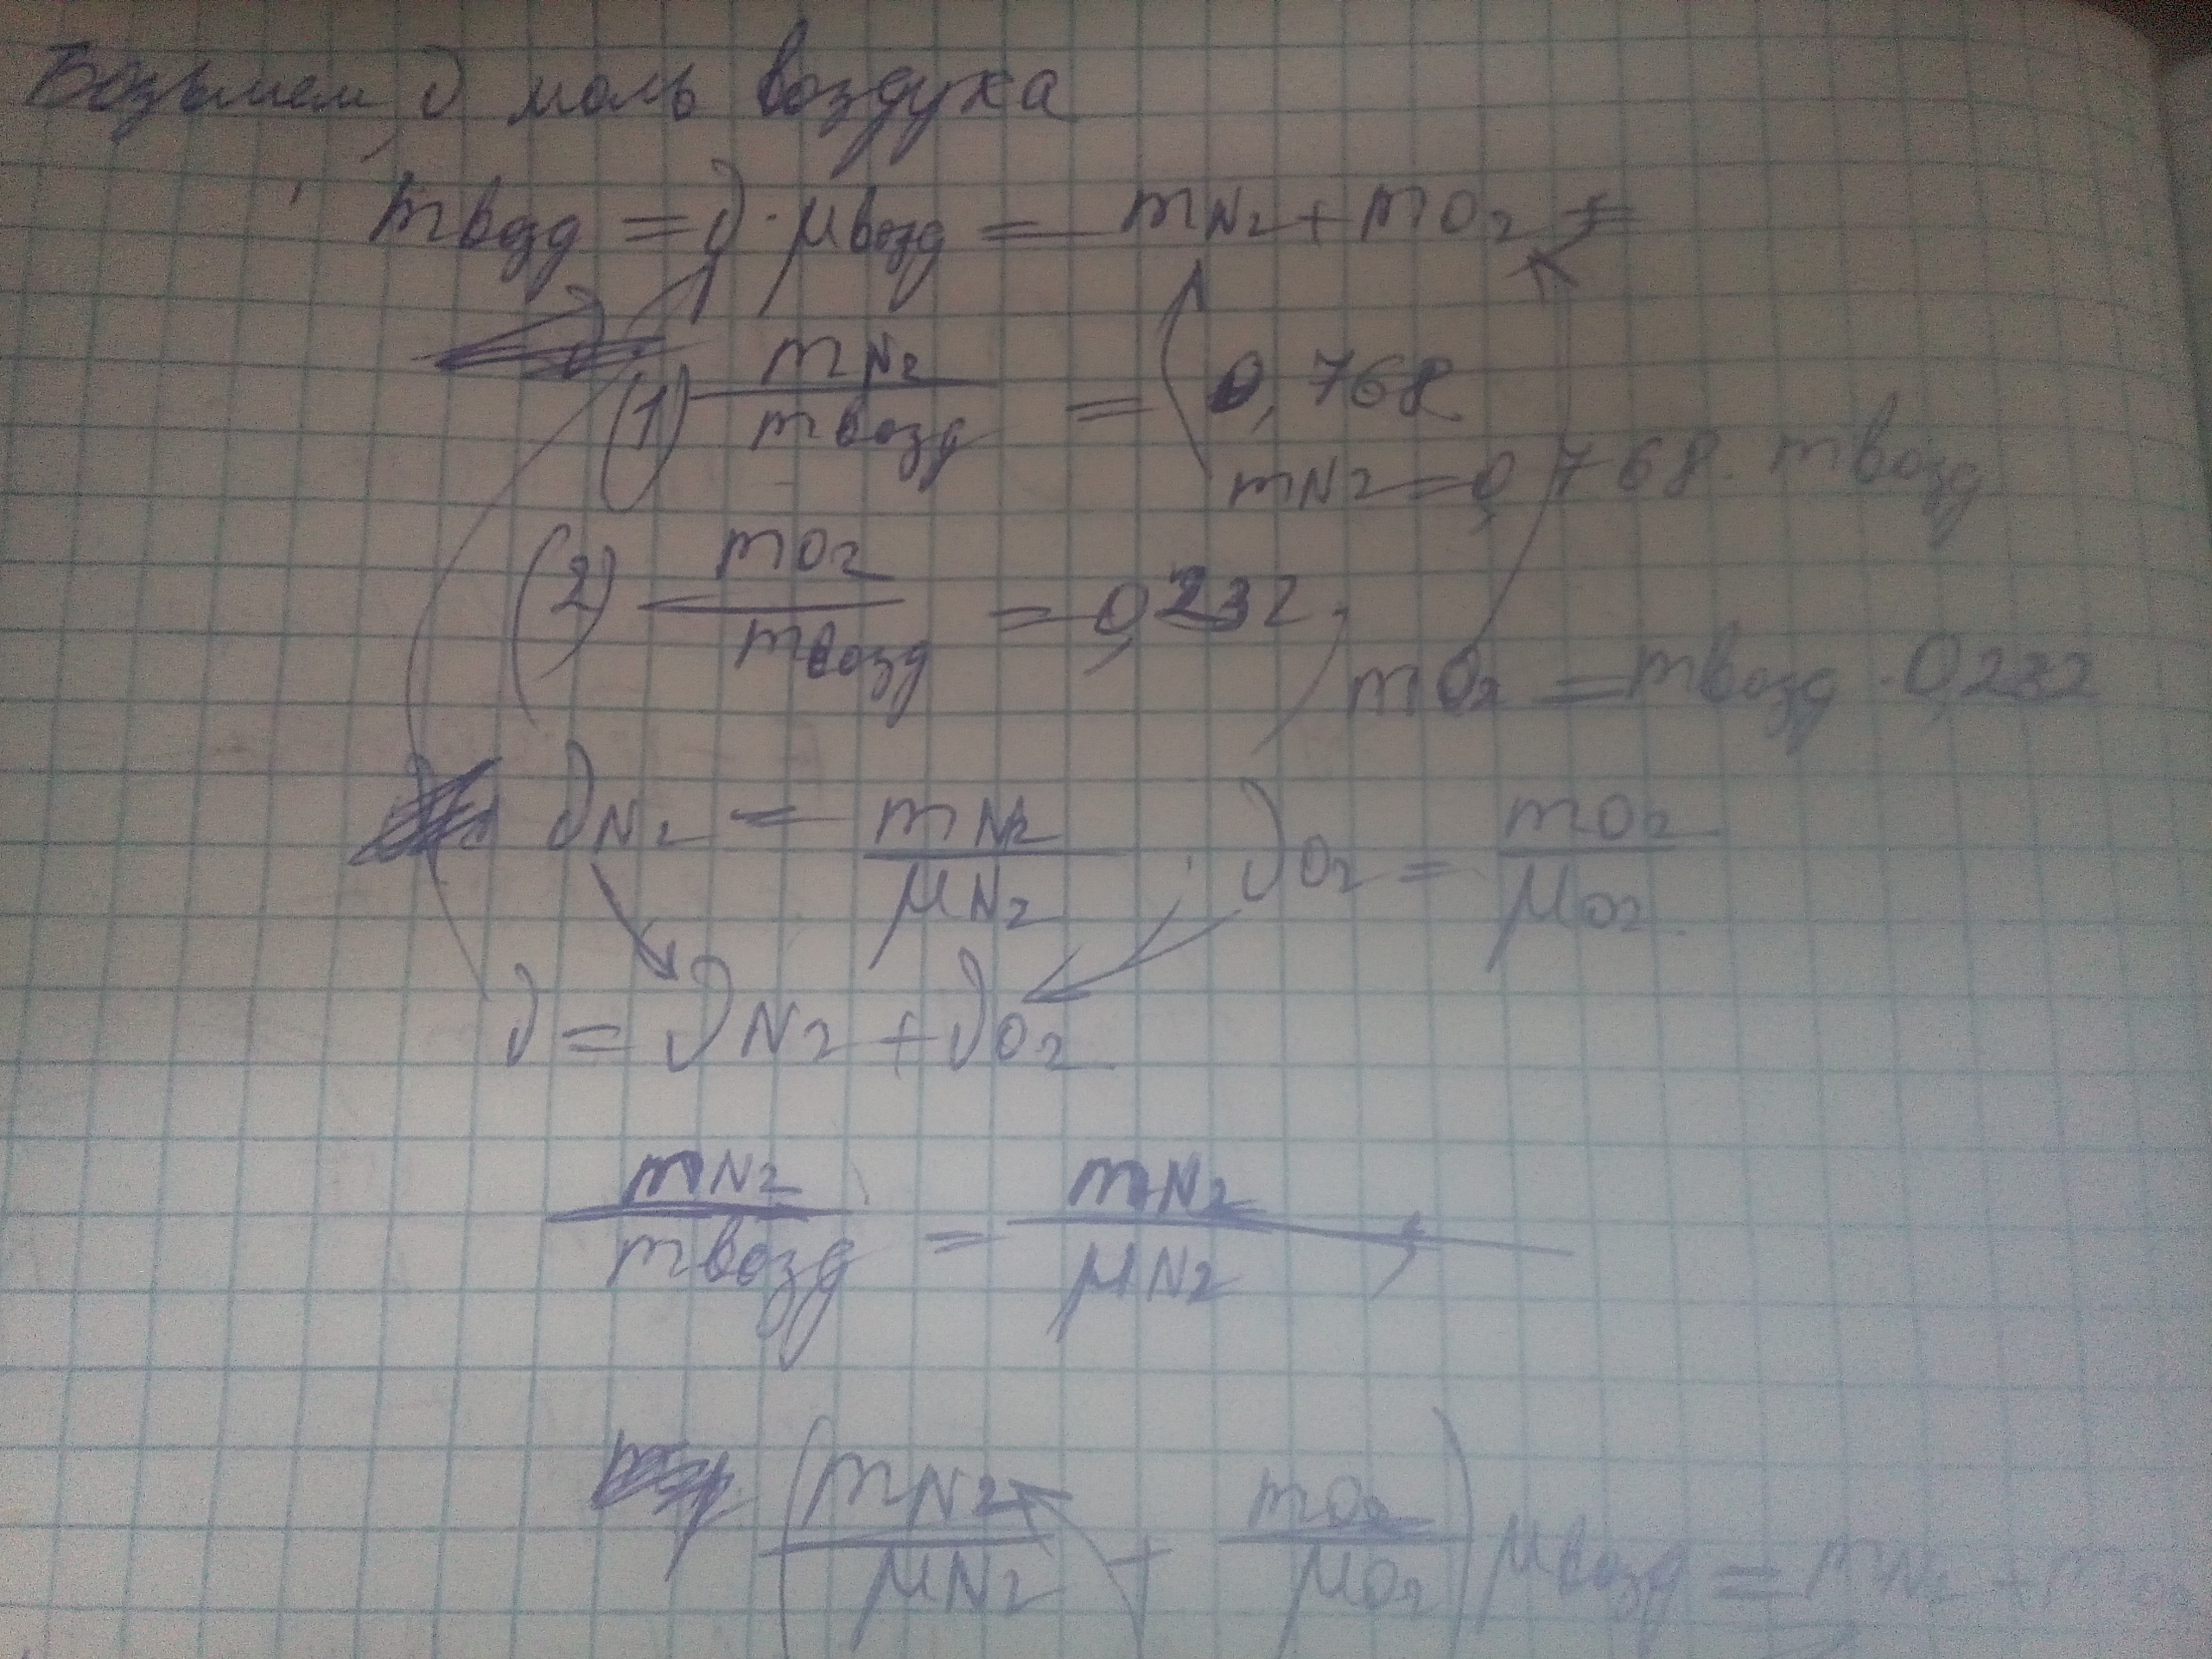 Возьмем ν моль воздуха
mвозд = ν · μвозд = mN2 + mO2 =
(1) mN2 / mвозд = 0,768
mN2 = 0,768 · mвозд
(2) mO2 / mвозд = 0,232;
mO2 = mвозд · 0,232
νN2 = mN2 / μN2 ; νO2 = mO2 / μO2
ν = νN2 + νO2
mN2 / mвозд = mN2 / μN2
(mN2 / μN2 + mO2 / μO2) μвозд = mN2 + mO2